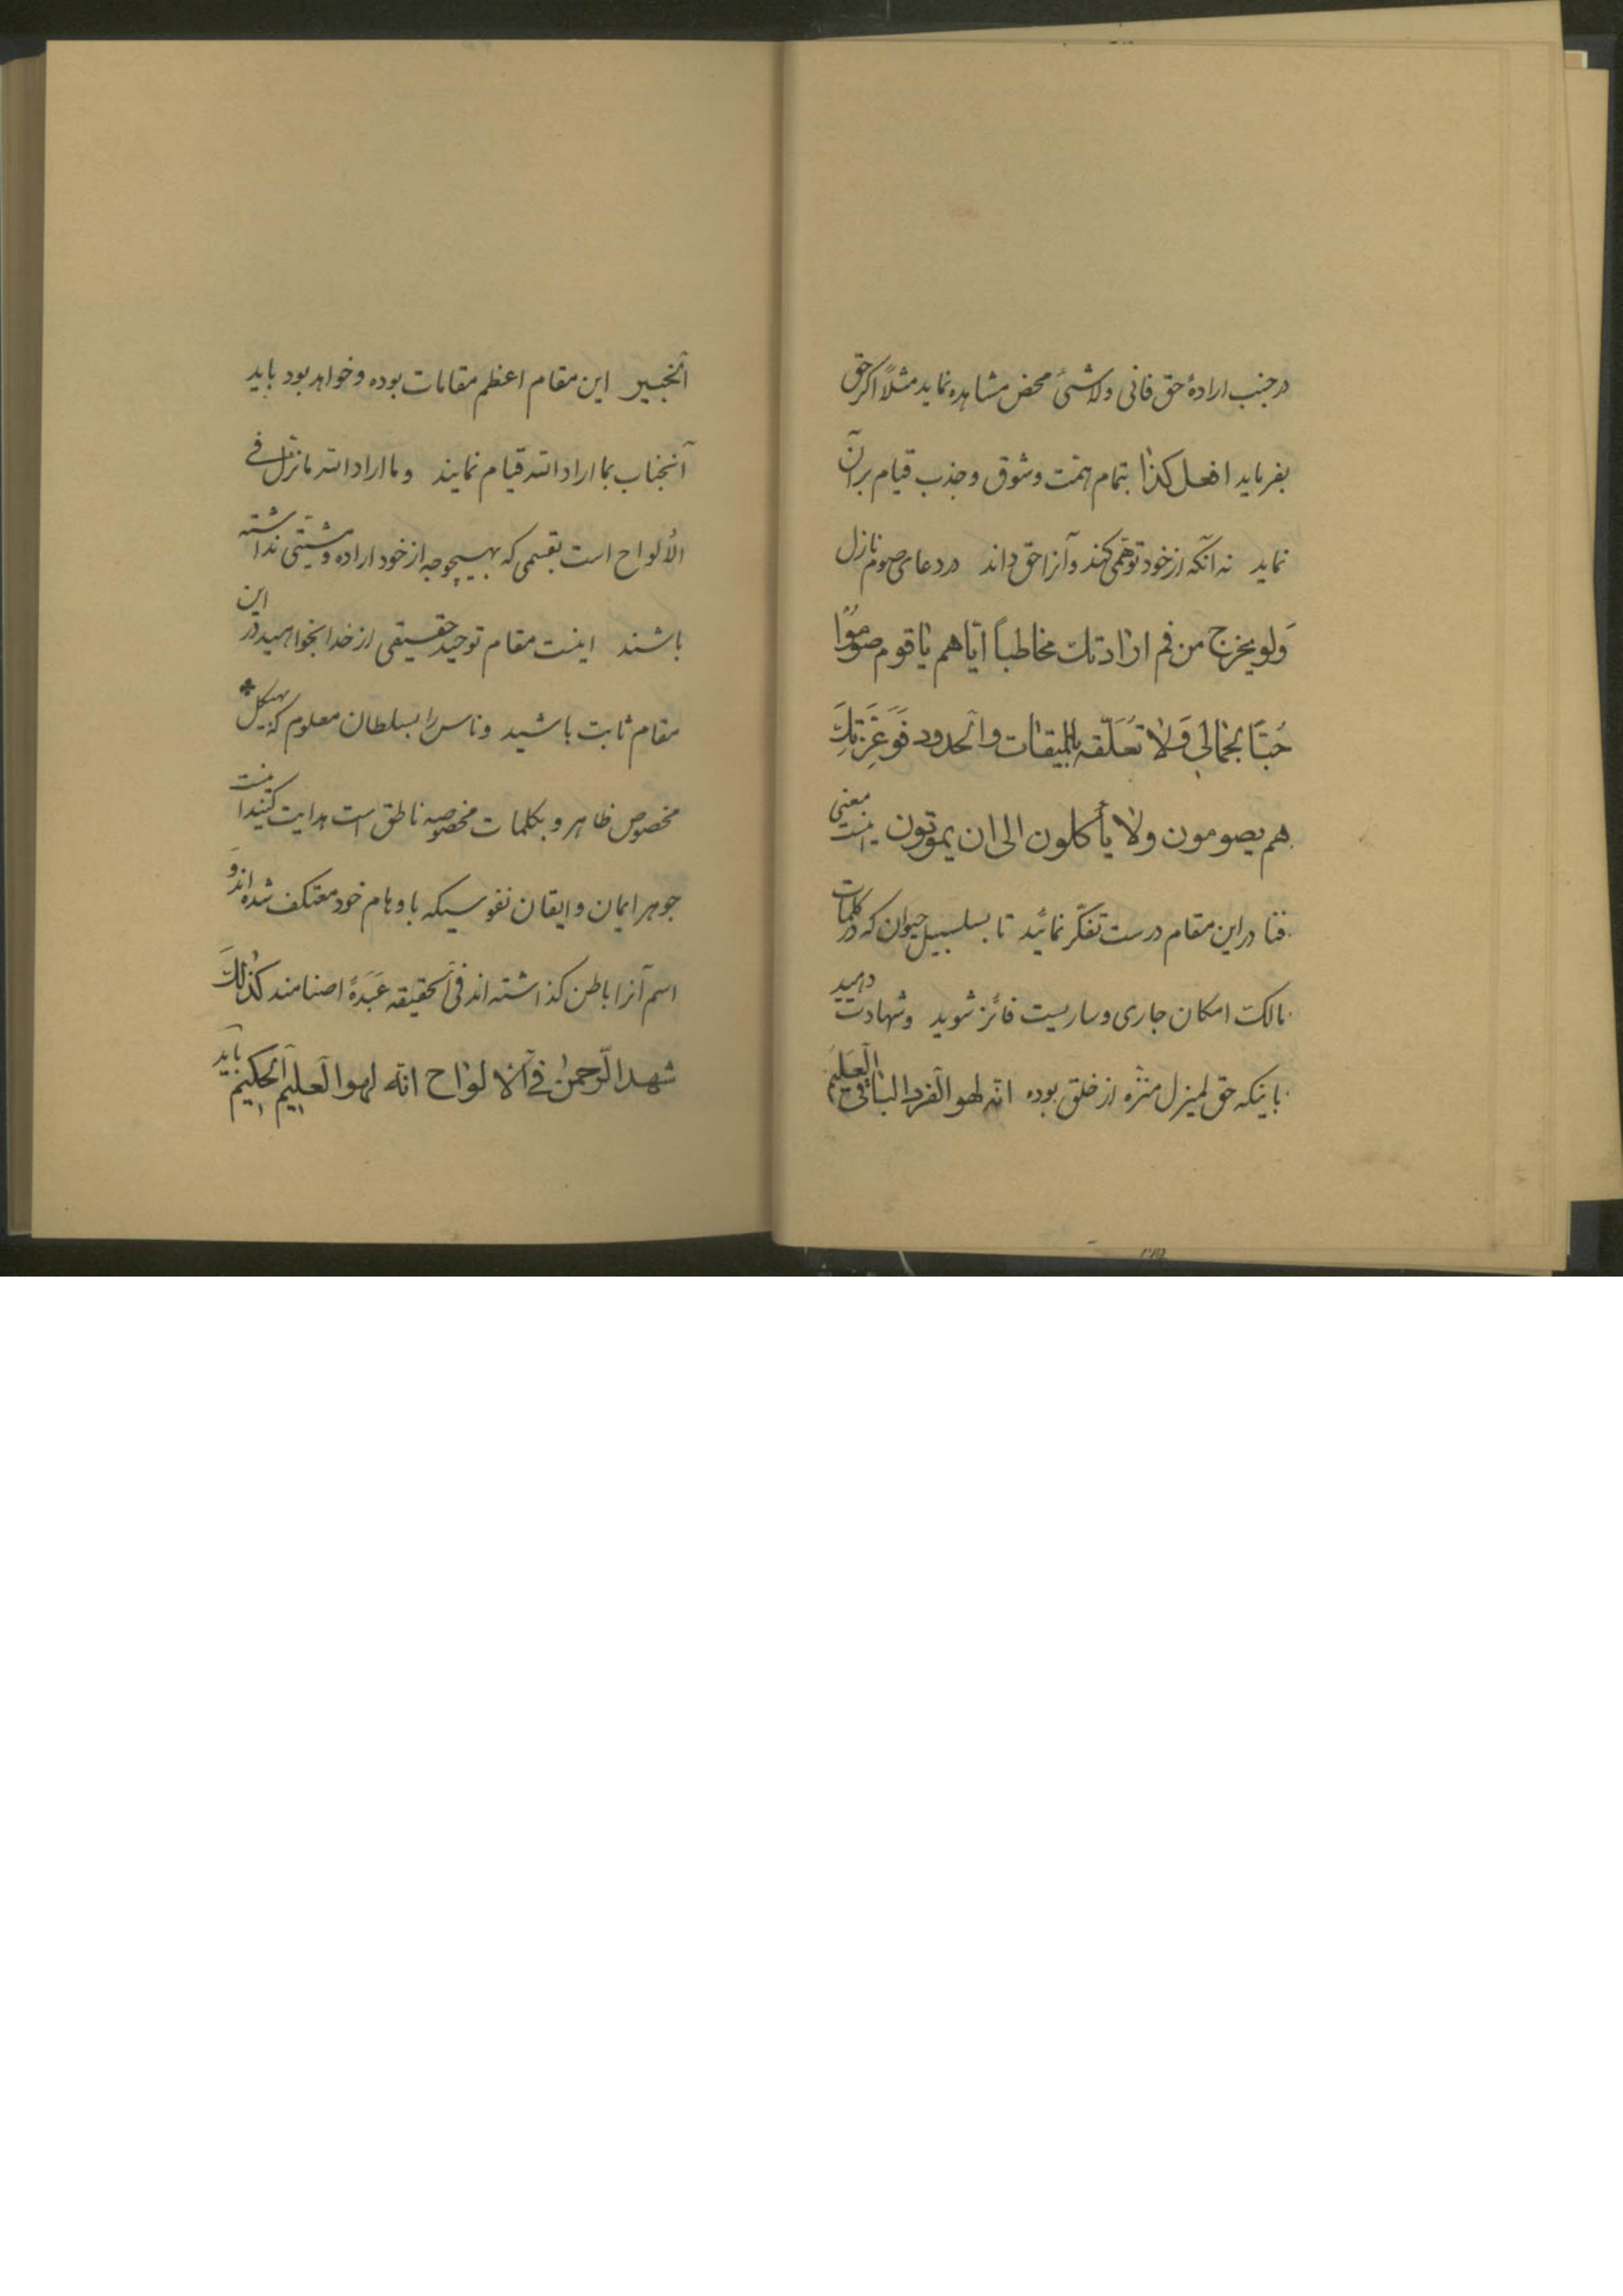 در جنب ارادهٔ حق فانی ولاشئ محض مشاهده نماید مثلاً اگر حق
بفرماید افعل کذا بتمام همّت و شوق و جذب قیام بر آن
نماید نه آنکه از خود توهّمی کند و آنرا حق داند در دعای صوم نازل
وَلو یخرج من فم ارادتک مخاطباً ایّاهم یا قوم صوموا
حُبّاً لجمالی وَلا تعلّقه بالمیقات والحدود فَوَعِزَّتِکَ
هم یصومون ولا یأکلون الی ان یموتون اینست معنی
فنا در این مقام درست تفکّر نمائید تا بسلسبیل حیوان که در کلمات
مالک امکان جاری و ساریست فائز شوید و شهادت دهید
باینکه حق لمیزل منزّه از خلق بوده انّه لهو الفرد الباقی العلیم
الخبیر این مقام اعظم مقامات بوده و خواهد بود باید
آنجناب بما اراد الله قیام نمایند و ما اراد الله ما نزّل فی
الألواح است بقسمی که بهیچوجه از خود اراده و مشیّتی نداشته
باشند اینست مقام توحید حقیقی از خدا بخواهید در این
مقام ثابت باشید و ناس را بسلطان معلوم که بهیکل
مخصوص ظاهر و بکلمات مخصوصه ناطق است هدایت کنید اینست
جوهر ایمان و ایقان نفوسیکه باوهام خود معتکف شده‌اند و
اسم آنرا باطن گذاشته‌اند فی الحقیقه عَبَدَهٔ اصنامند کذلک
شهد الرّحمن فی الالواح انّه لهو العلیم الحکیم باید